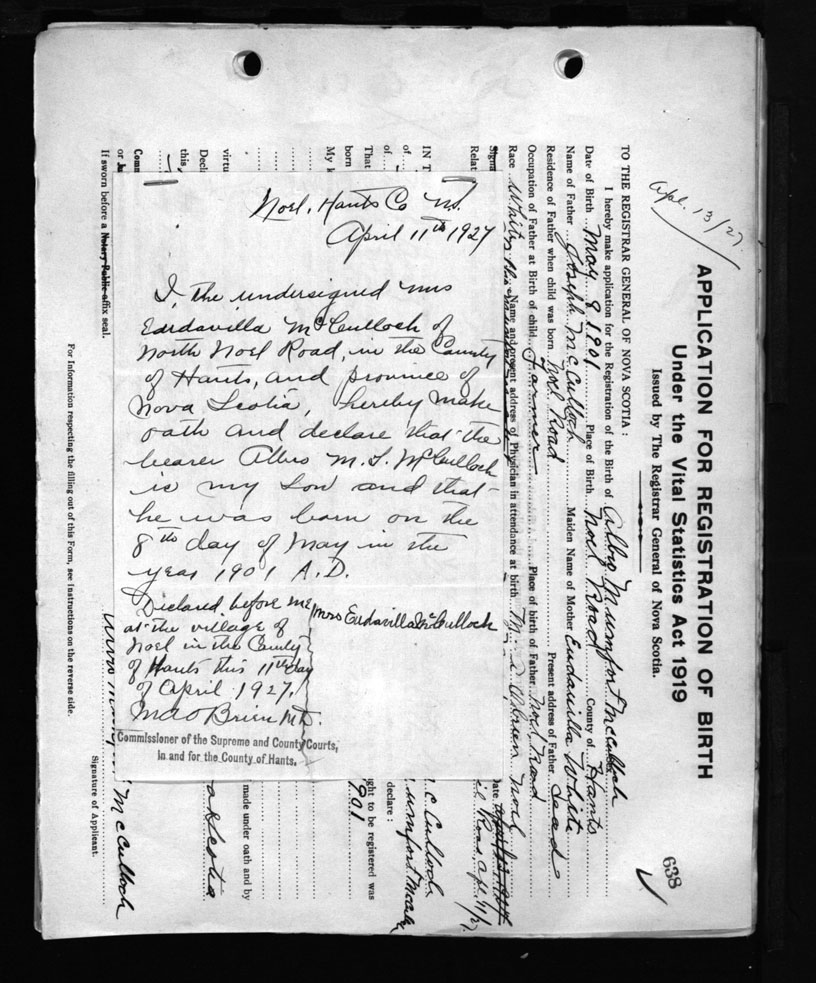 Apl. 13/27.
APPLICATION FOR REGISTRATION OF BIRTH
Under the Vital Statistics Act 1919
Issued by The Registrar General of Nova Scotia.
638
TO THE REGISTRAR GENERAL OF NOVA SCOTIA:
I hereby make application for the Registration of the Birth of Mumfort McCulloch
Date of Birth May 8 1901 Place of Birth Noel Road County of Hants
Name of Father Joseph McCulloch Maiden Name of Mother Eudavilla White
Residence of Father when child was born Noel Road Present address of Father dead
Occupation of Father at Birth of child Farmer Place of birth of Father Noel Road
Race White Name and present address of Physician in attendance at birth O'Brien Noel
Signa
Relat
IN T
of
of
That
born
My k
virtu
Decl
this
Comm
or
If sworn before a Notary Public affix seal.
For Information respecting the filling out of this Form, see instructions on the reverse side.
Date
declare :
ght to be registered was
901
made under oath and by
McCulloch
Signature of Applicant.
Noel, Hants Co N.S.
April 11th 1927
I, the undersigned Mrs
Eudavilla McCulloch of
North Noel Road, in the County
of Hants, and province of
Nova Scotia, hereby make
oath and declare that the
bearer M. J. McCulloch
is my son and that
he was born on the
8th day of May in the
year 1901 A.D.
Declared before me
at the village of
Noel in the County
of Hants this 11th day
of April 1927.
O'Brien M.D.
Mrs Eudavilla McCulloch
Commissioner of the Supreme and County Courts,
in and for the County of Hants.